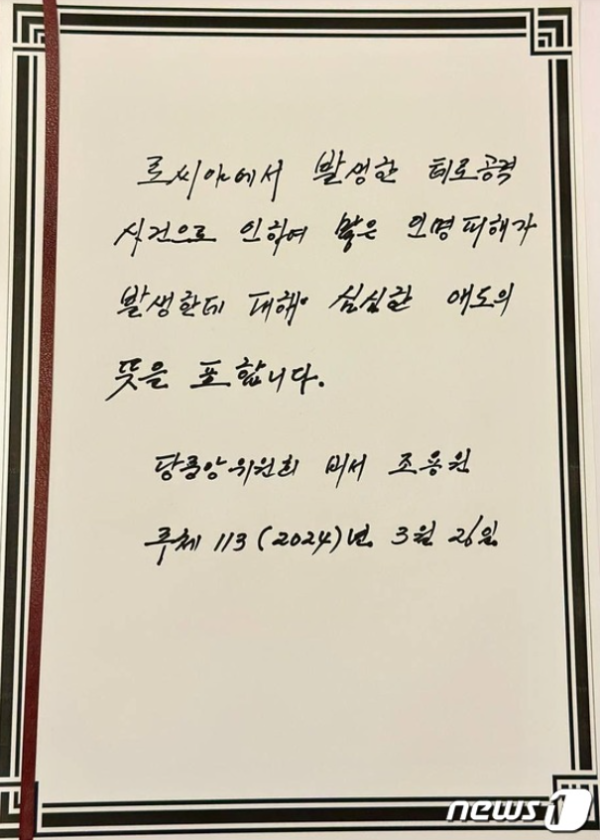 로씨아에서 발생한 테로공격
사건으로 인하여 많은 인명피해가
발생한데 대해 심심한 애도의
뜻을 표합니다.
당중앙위원회 비서 조용원
주체 113(2024)년 3월 26일
news1